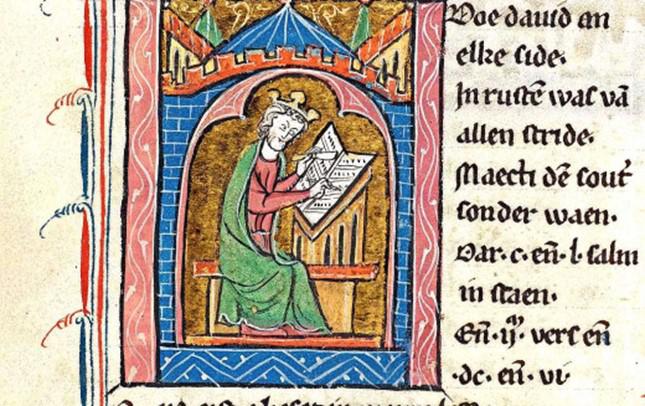 Doe dauid an
elke side.
In rustē was vā
allen stride.
Maecti dē sout͛
sonder waen.
Dar .c. en̄ .l. salm
in staen.
En̄ .ij.ͫ vers en̄
.dc. en̄ .vi.